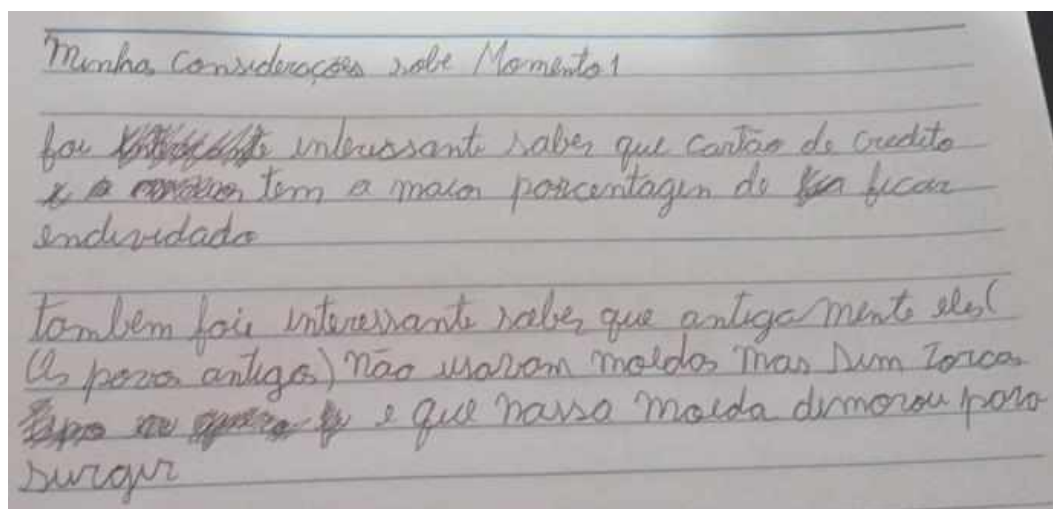 Minha Considerações sobe Momento 1
foi interessant saber que cartão de credito
tem a maior porcentagen de ficar
endividado
também foi interessante saber que antigamente eles(
(Os povos antigos) não usavam moedas mas sim torcas
e que nossa moeda demorou para
surgir